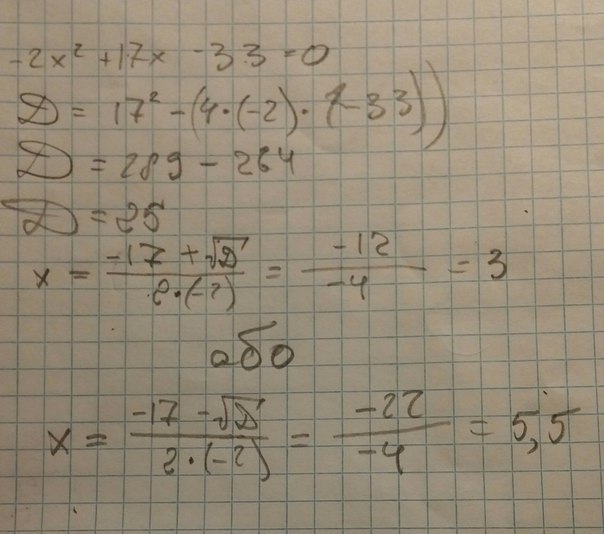 -2x² + 17x - 33 = 0
D = 17² - (4·(-2)·(-33))
D = 289 - 264
D = 25
x = (-17 + √D) / (2·(-2)) = -12 / -4 = 3
або
x = (-17 - √D) / (2·(-2)) = -22 / -4 = 5,5